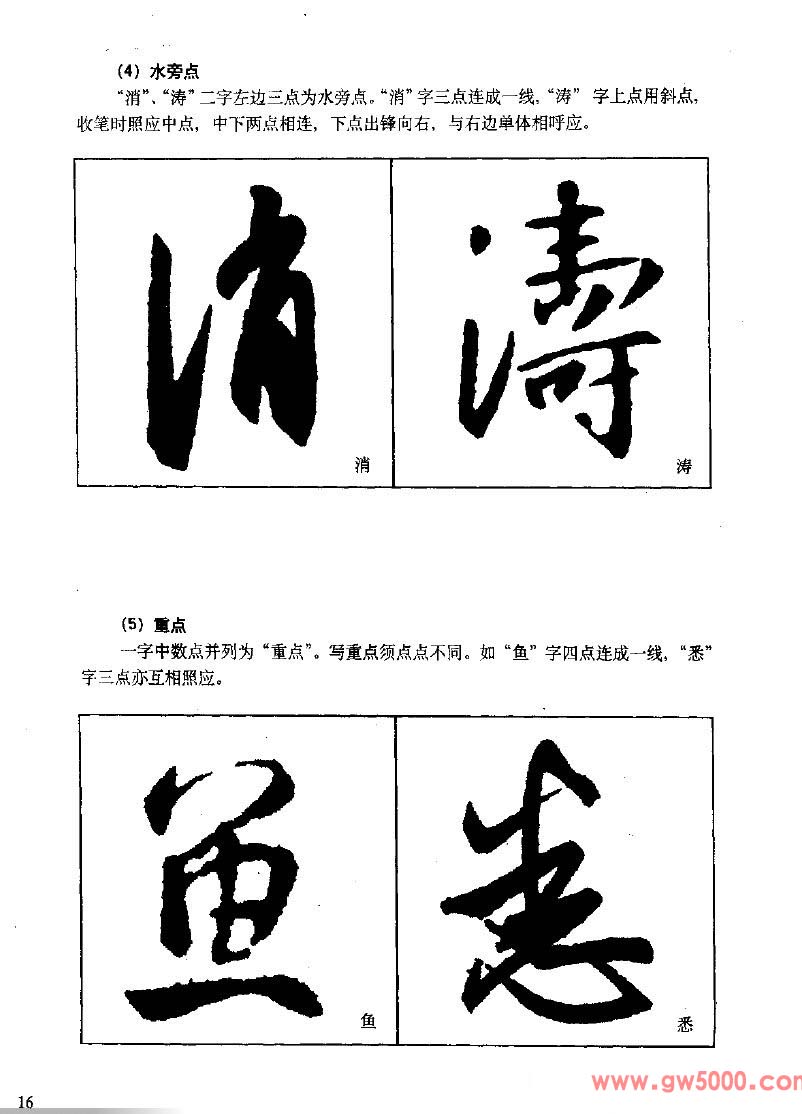 (4) 水旁点
“消”、“涛”二字左边三点为水旁点。“消”字三点连成一线，“涛” 字上点用斜点，
收笔时照应中点，中下两点相连，下点出锋向右，与右边单体相呼应。
消
濤
消
涛
(5) 重点
一字中数点并列为“重点”。写重点须点点不同。如“鱼”字四点连成一线，“悉”
字三点亦互相照应。
鱼
悉
鱼
悉
www.gw5000.com
16